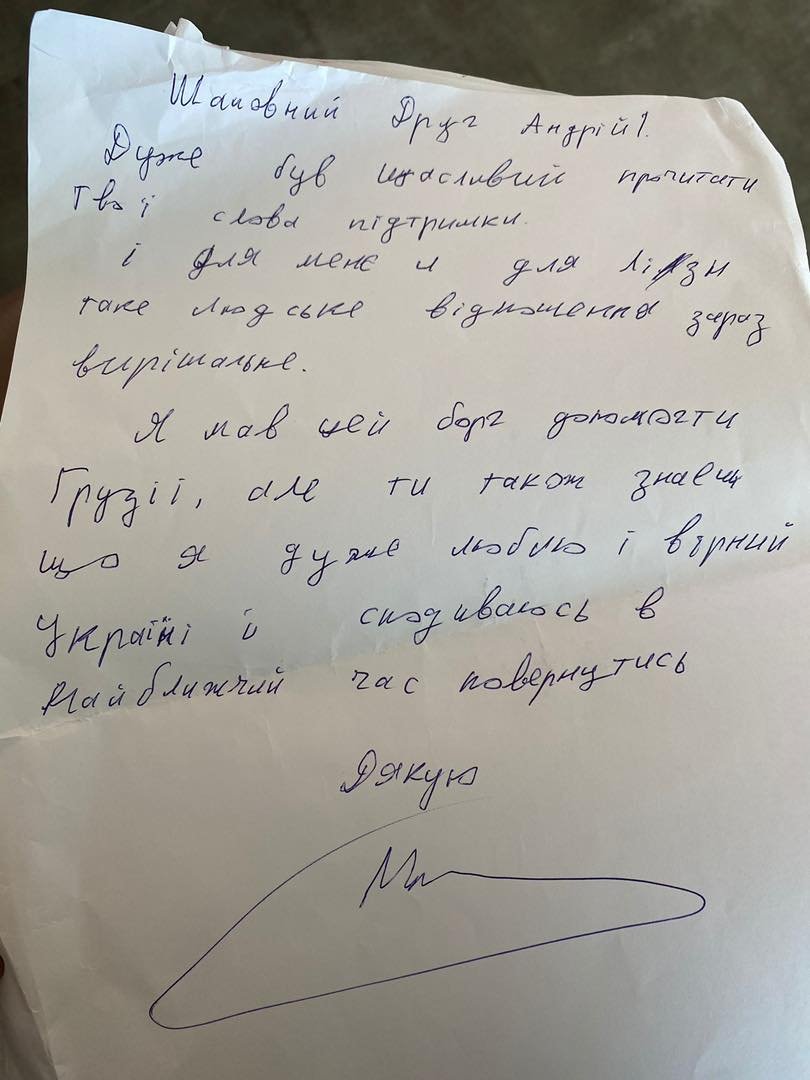 Шановний Друг Андрій!
Дуже був щасливий прочитати
Твої слова підтримки.
і для мене и для Лізи
таке людське відношення зараз
вирішальне.
Я мав цей борг допомогти
Грузії, але ти також знаєш
що я дуже люблю і вірний
Україні й сподиваюсь в
Найближчий час повернутись
Дякую